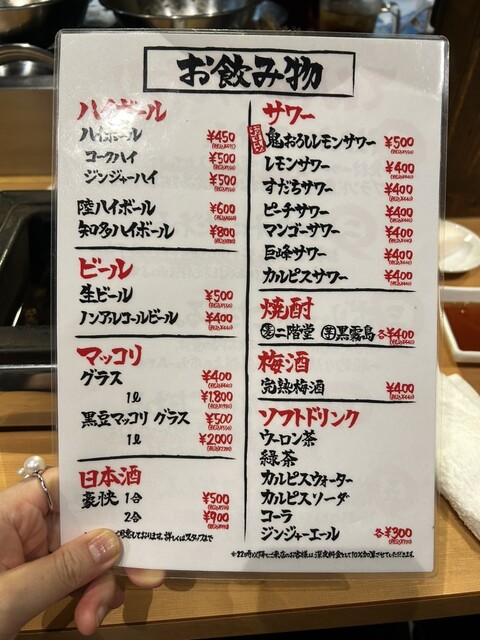 お飲み物
ハイボール
ハイボール ¥450
コークハイ ¥500
ジンジャーハイ ¥500
陸ハイボール ¥600
知多ハイボール ¥800
ビール
生ビール ¥500
ノンアルコールビール ¥400
マッコリ
グラス ¥400
1ℓ ¥1,800
黒豆マッコリ グラス ¥500
1ℓ ¥2,000
日本酒
豪快 1合 ¥500
2合 ¥900
しております。詳しくはスタッフまで
サワー
鬼おろしレモンサワー ¥500
レモンサワー ¥400
すだちサワー ¥400
ピーチサワー ¥400
マンゴーサワー ¥400
巨峰サワー ¥400
カルピスサワー ¥400
焼酎
麦 二階堂 芋 黒霧島 各¥400
梅酒
完熟梅酒 ¥400
ソフトドリンク
ウーロン茶
緑茶
カルピスウォーター
カルピスソーダ
コーラ
ジンジャーエール 各¥300
※22時以降にご来店のお客様は深夜料金として10%加算させていただきます。